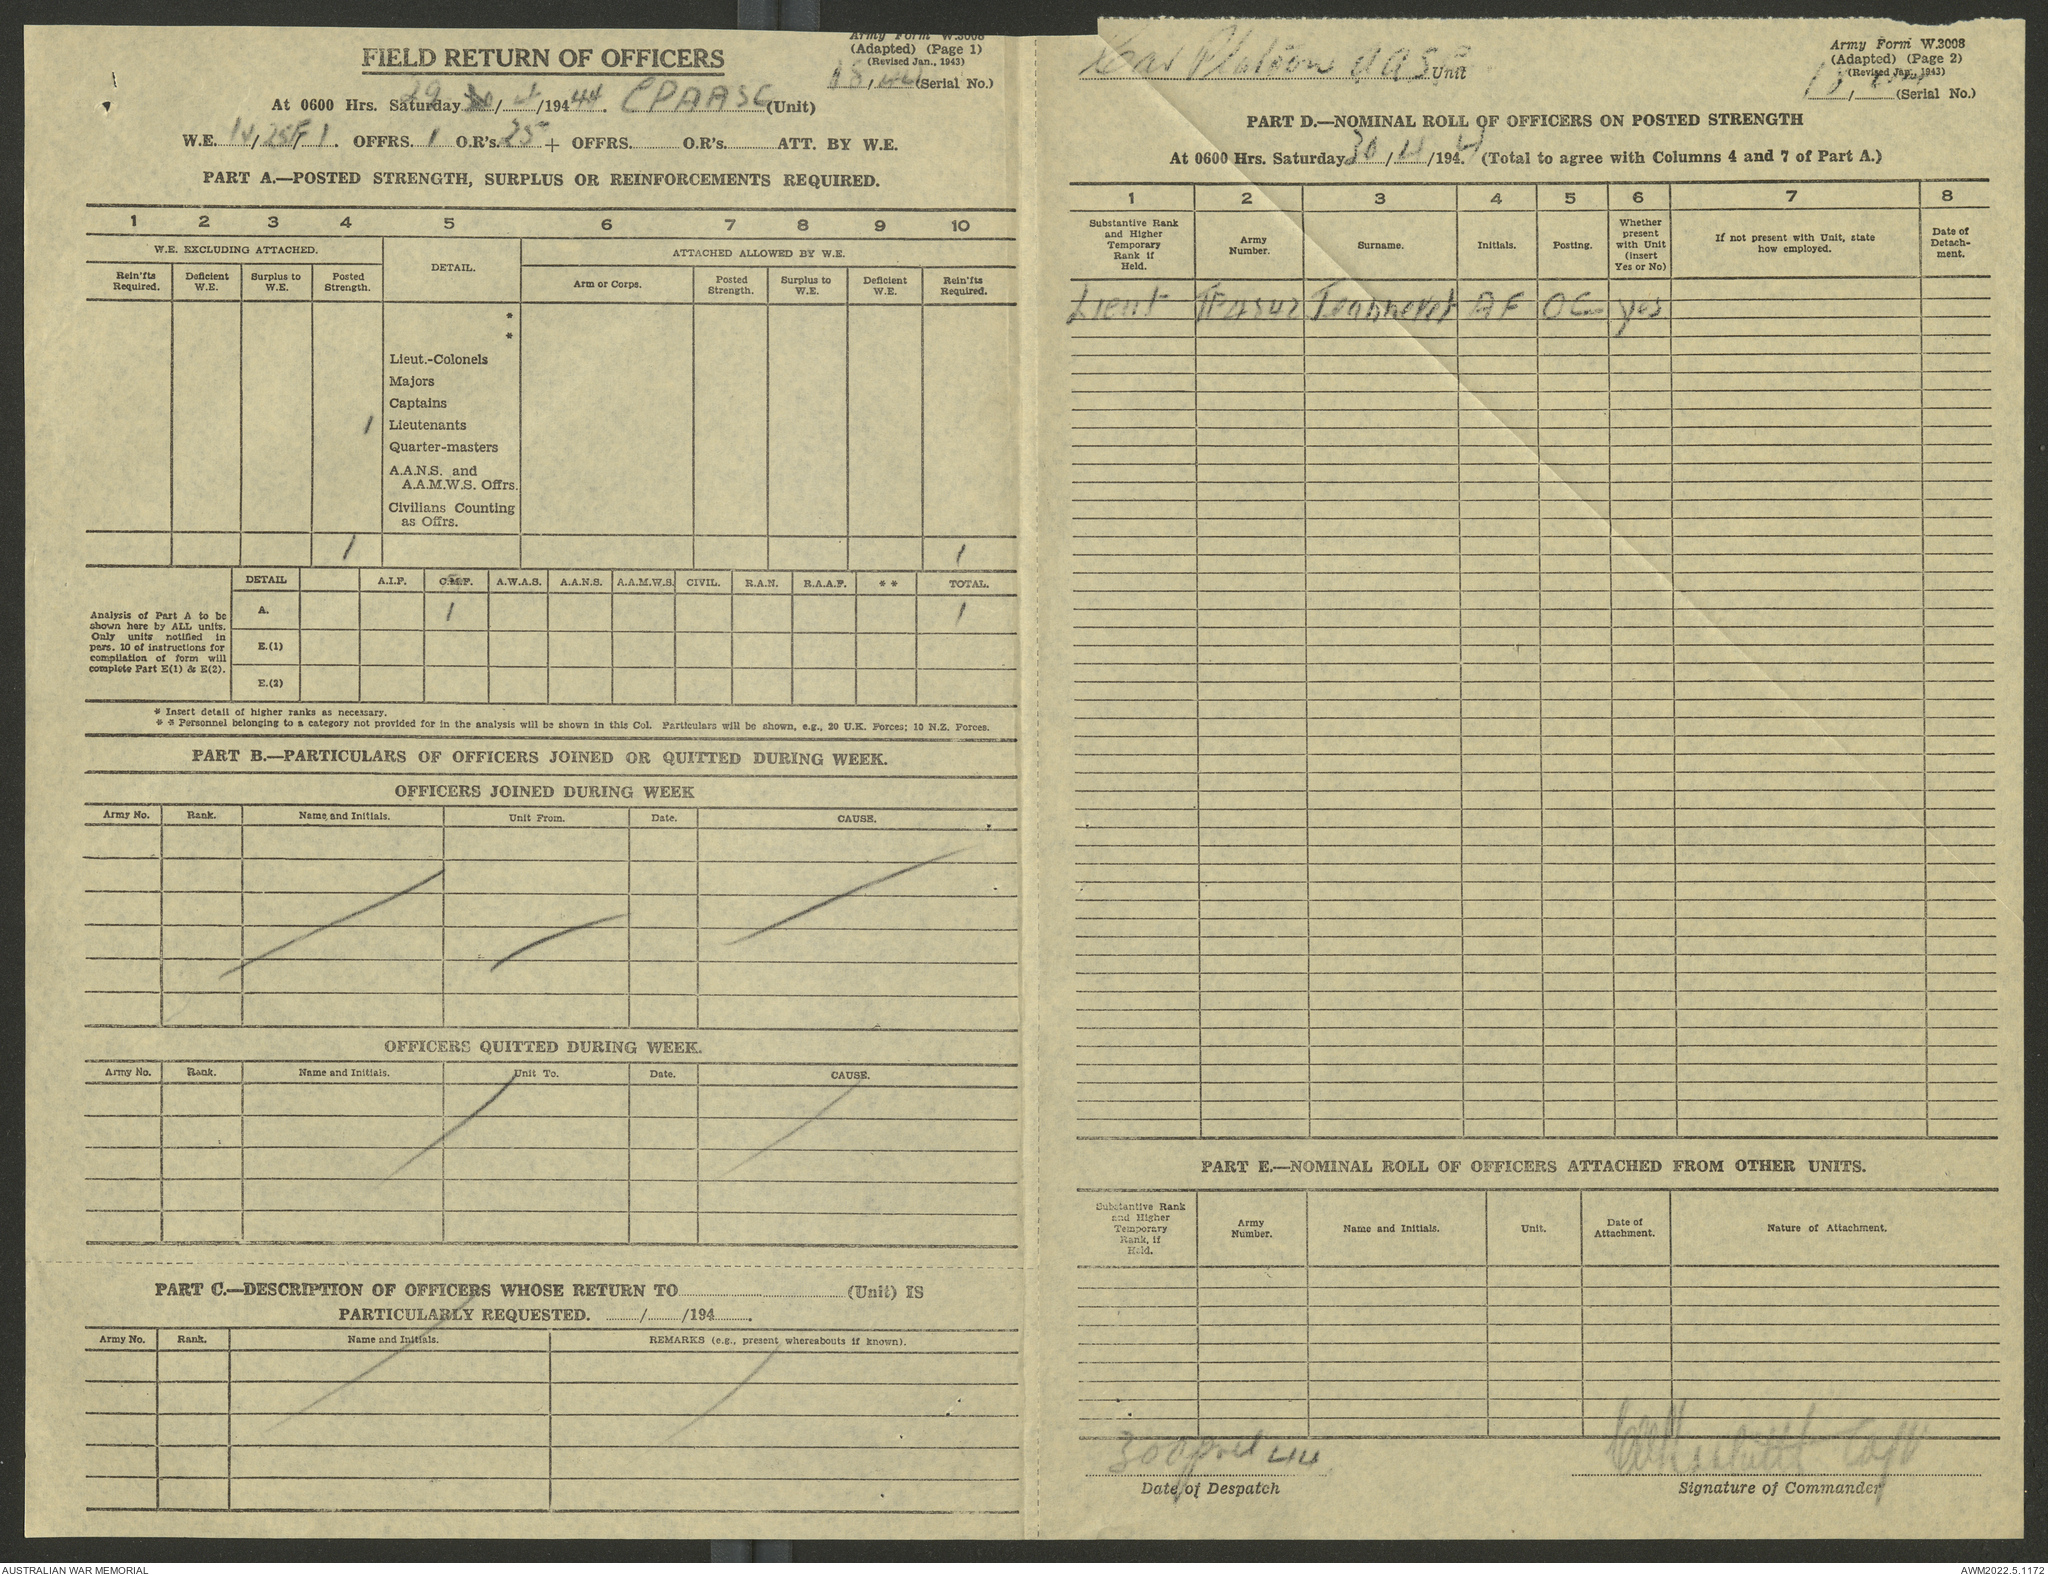 FIELD RETURN OF OFFICERS
Army Form W.3008
(Adapted) (Page 1)
(Revised Jan., 1943)
18, 44 (Serial No.)
At 0600 Hrs. Saturday 29/4/1944. CPAASC (Unit)
W.E. / / 1. OFFRS. 1 O.R's. 25 + OFFRS. O.R's. ATT. BY W.E.
PART A.—POSTED STRENGTH, SURPLUS OR REINFORCEMENTS REQUIRED.
1 2 3 4 5 6 7 8 9 10
W.E. EXCLUDING ATTACHED.
DETAIL.
ATTACHED ALLOWED BY W.E.
Rein'fts Required.
Deficient W.E.
Surplus to W.E.
Posted Strength.
Arm or Corps.
Posted Strength.
Surplus to W.E.
Deficient W.E.
Rein'fts Required.
*
*
Lieut.-Colonels
Majors
Captains
1 Lieutenants
Quarter-masters
A.A.N.S. and
A.A.M.W.S. Offrs.
Civilians Counting
as Offrs.
1 1
DETAIL A.I.F. C.M.F. A.W.A.S. A.A.N.S. A.A.M.W.S. CIVIL. R.A.N. R.A.A.F. * * TOTAL.
Analysis of Part A to be
shown here by ALL units.
Only units notified in
para. 10 of instructions for
compilation of form will
complete Part E(1) & E(2).
A. 1 1
E.(1)
E.(2)
* Insert detail of higher ranks as necessary.
* * Personnel belonging to a category not provided for in the analysis will be shown in this Col. Particulars will be shown, e.g., 20 U.K. Forces; 10 N.Z. Forces.
PART B.—PARTICULARS OF OFFICERS JOINED OR QUITTED DURING WEEK.
OFFICERS JOINED DURING WEEK
Army No. Rank. Name and Initials. Unit From. Date. CAUSE.
OFFICERS QUITTED DURING WEEK.
Army No. Rank. Name and Initials. Unit To. Date. CAUSE.
PART C.—DESCRIPTION OF OFFICERS WHOSE RETURN TO (Unit) IS
PARTICULARLY REQUESTED. / /194 .
Army No. Rank. Name and Initials. REMARKS (e.g., present whereabouts if known).
Car Platoon AASC Unit
Army Form W.3008
(Adapted) (Page 2)
(Revised Jan., 1943)
18, (Serial No.)
PART D.—NOMINAL ROLL OF OFFICERS ON POSTED STRENGTH
At 0600 Hrs. Saturday 30/4/1944 (Total to agree with Columns 4 and 7 of Part A.)
1 2 3 4 5 6 7 8
Substantive Rank
and Higher
Temporary
Rank if
Held.
Army
Number.
Surname.
Initials.
Posting.
Whether
present
with Unit
(insert
Yes or No)
If not present with Unit, state
how employed.
Date of
Detach-
ment.
Lieut AF OC yes
PART E.—NOMINAL ROLL OF OFFICERS ATTACHED FROM OTHER UNITS.
Substantive Rank
and Higher
Temporary
Rank, if
Held.
Army
Number.
Name and Initials.
Unit.
Date of
Attachment.
Nature of Attachment.
30 April 44
Date of Despatch
Capt
Signature of Commander
AUSTRALIAN WAR MEMORIAL
AWM2022.5.1172